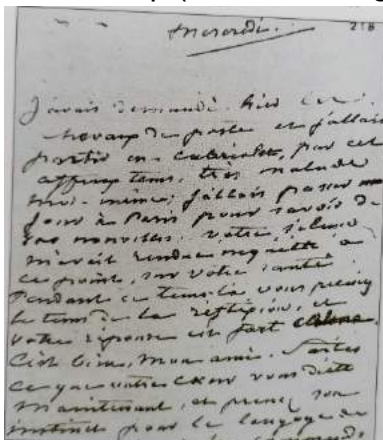 mercredi.
218
J'avais demandé hier les
chevaux de poste et j'allais
partir en cabriolet, par cet
affreux tems, très malade
moi-même; j'allais passer un
jour à Paris pour savoir de
vos nouvelles. votre silence
m'avait rendue inquiète à
ce point, sur votre santé.
Pendant ce tems-là vous preniez
le tems de la réflexion, et
votre réponse est fort
C'est bien, mon ami. Faites
ce que votre cœur vous dicte
maintenant, et prenez son
instinct pour le langage de